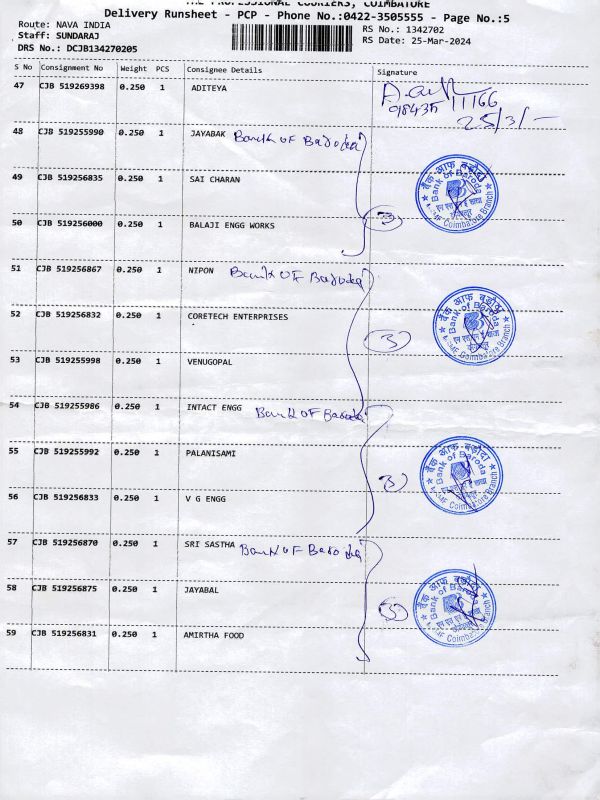 THE PROFESSIONAL COURIERS, COIMBATORE
Delivery Runsheet - PCP - Phone No.:0422-3505555 - Page No.:5
Route: NAVA INDIA
Staff: SUNDARAJ
DRS No.: DCJB134270205
RS No.: 1342702
RS Date: 25-Mar-2024
S No Consignment No Weight PCS Consignee Details Signature
47 CJB 519269398 0.250 1 ADITEYA
98435 11166
25/3/-
48 CJB 519255990 0.250 1 JAYABAK Bank OF Baroda
49 CJB 519256835 0.250 1 SAI CHARAN
बैंक आफ बड़ौदा
Bank of Baroda
Coimbatore Branch
50 CJB 519256000 0.250 1 BALAJI ENGG WORKS
3
51 CJB 519256867 0.250 1 NIPON Bank OF Baroda
52 CJB 519256832 0.250 1 CORETECH ENTERPRISES
3
बैंक आफ बड़ौदा
Bank of Baroda
Coimbatore Branch
53 CJB 519255998 0.250 1 VENUGOPAL
54 CJB 519255986 0.250 1 INTACT ENGG Bank OF Baroda
55 CJB 519255992 0.250 1 PALANISAMI
3
बैंक आफ बड़ौदा
Bank of Baroda
Coimbatore Branch
56 CJB 519256833 0.250 1 V G ENGG
57 CJB 519256870 0.250 1 SRI SASTHA Bank OF Baroda
58 CJB 519256875 0.250 1 JAYABAL
3
बैंक आफ बड़ौदा
Bank of Baroda
Coimbatore Branch
59 CJB 519256831 0.250 1 AMIRTHA FOOD